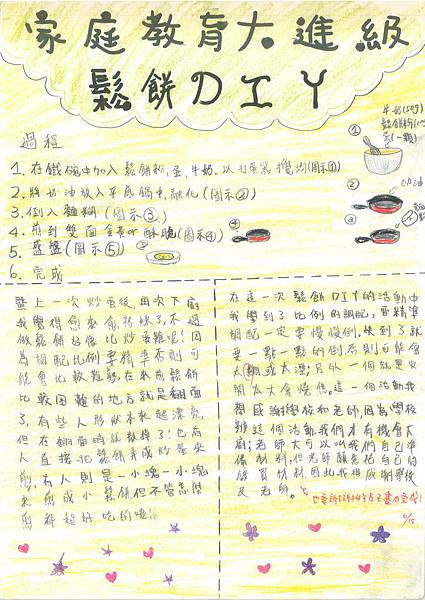 家庭教育大進級
鬆餅DIY
牛奶(50g)
鬆餅粉(100
蛋(一顆)
過程
①
1. 在鐵碗中加入鬆餅粉、蛋、牛奶.以打蛋器攪均(圖示①)
2. 將奶油放入平底鍋中,融化(圖示②)
奶油
②
3. 倒入麵糊(圖示③)
③
4. 煎到雙面金黃or酥脆(圖示④)
④
5. 盛盤(圖示⑤)
⑤
6. 完成
繼上一次炒蛋後,再次下廚
我覺得愈來愈拐妙了,不過
做鬆餅好像比炒蛋難呢!因
為調配比例要精準否則可
能會比較難煎,在來煎鬆餅
比較困難的地方就是翻面
了,有些人形狀本來超漂亮,
但在翻面時就散掉了!也有
人直接把鬆餅弄成炒蛋來
煎,有人則是一小塊一小塊
來煎成小鬆餅但不管怎麼
煎都超好吃的啦!
在這一次鬆餅DIY的活動中
我學到了比例的調配,要精準
調配一定要慢慢倒,快到了就
要一點一點的倒否則可能會
太稠或太濕,另外一個就是火
開太大會燒焦。這一個活動我
想感謝學校和老師,因為學校
辦這個活動我們才有機會大
廚;老師大可以叫我們自己準
備材料,但老師願意花自己的
錢買材料,因此我很感謝學校
及老師。
10/15